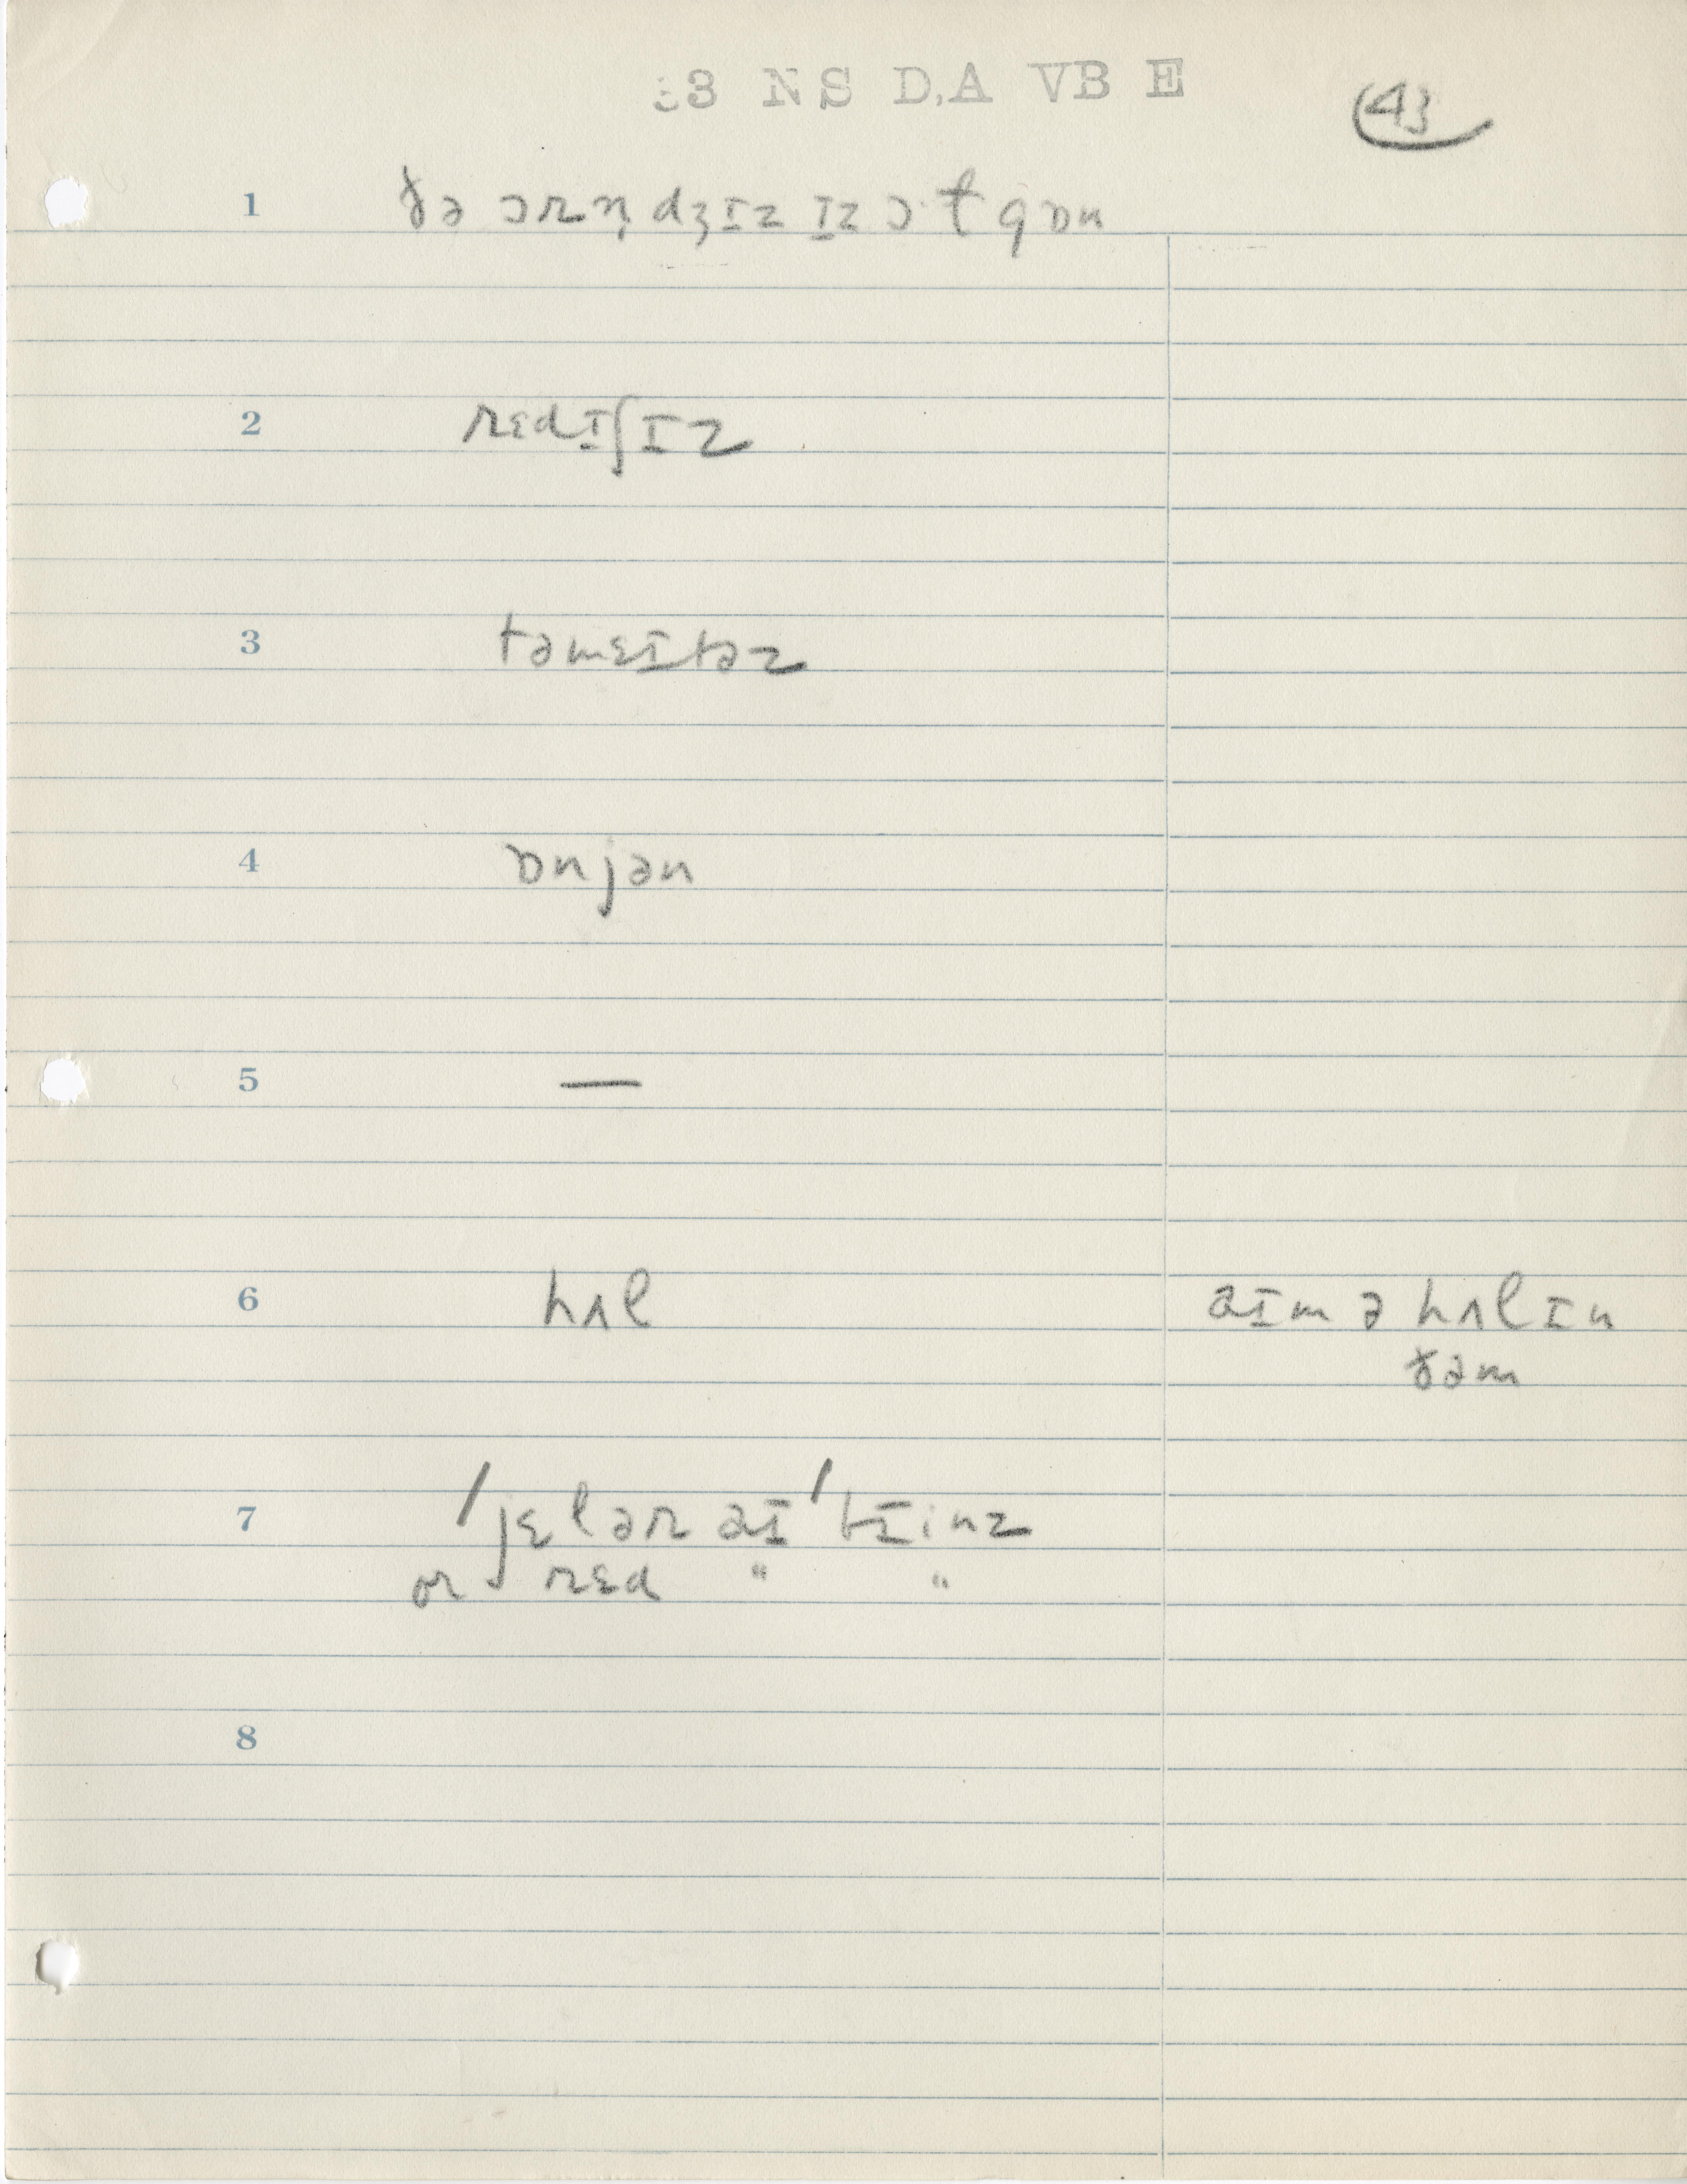 33 NS D,A VB E
43
1 ðə ɔrn̩dʒɪz ɪz ɔ·t gɒn
2 rɛdɪʃɪz
3 təmɛɪtəz
4 ɒnjən
5 —
6 hʌl aɪm ə hʌlɪn
ðəm
7 ˈjɛlər aɪˈtɪinz
or rɛd " "
8